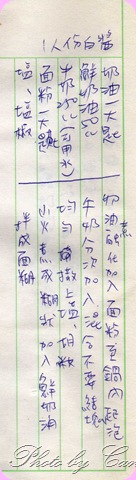 1人份白醬
奶油一大匙
鮮奶油50cc
牛奶50cc(可用水)
面粉一大匙
塩、胡椒
奶油融化加入面粉至鍋內起泡
牛奶分次加入混合不要結塊
均勻撒上塩、胡椒
小火煮成糊狀加入鮮奶油
拌成面糊
Photo by Can